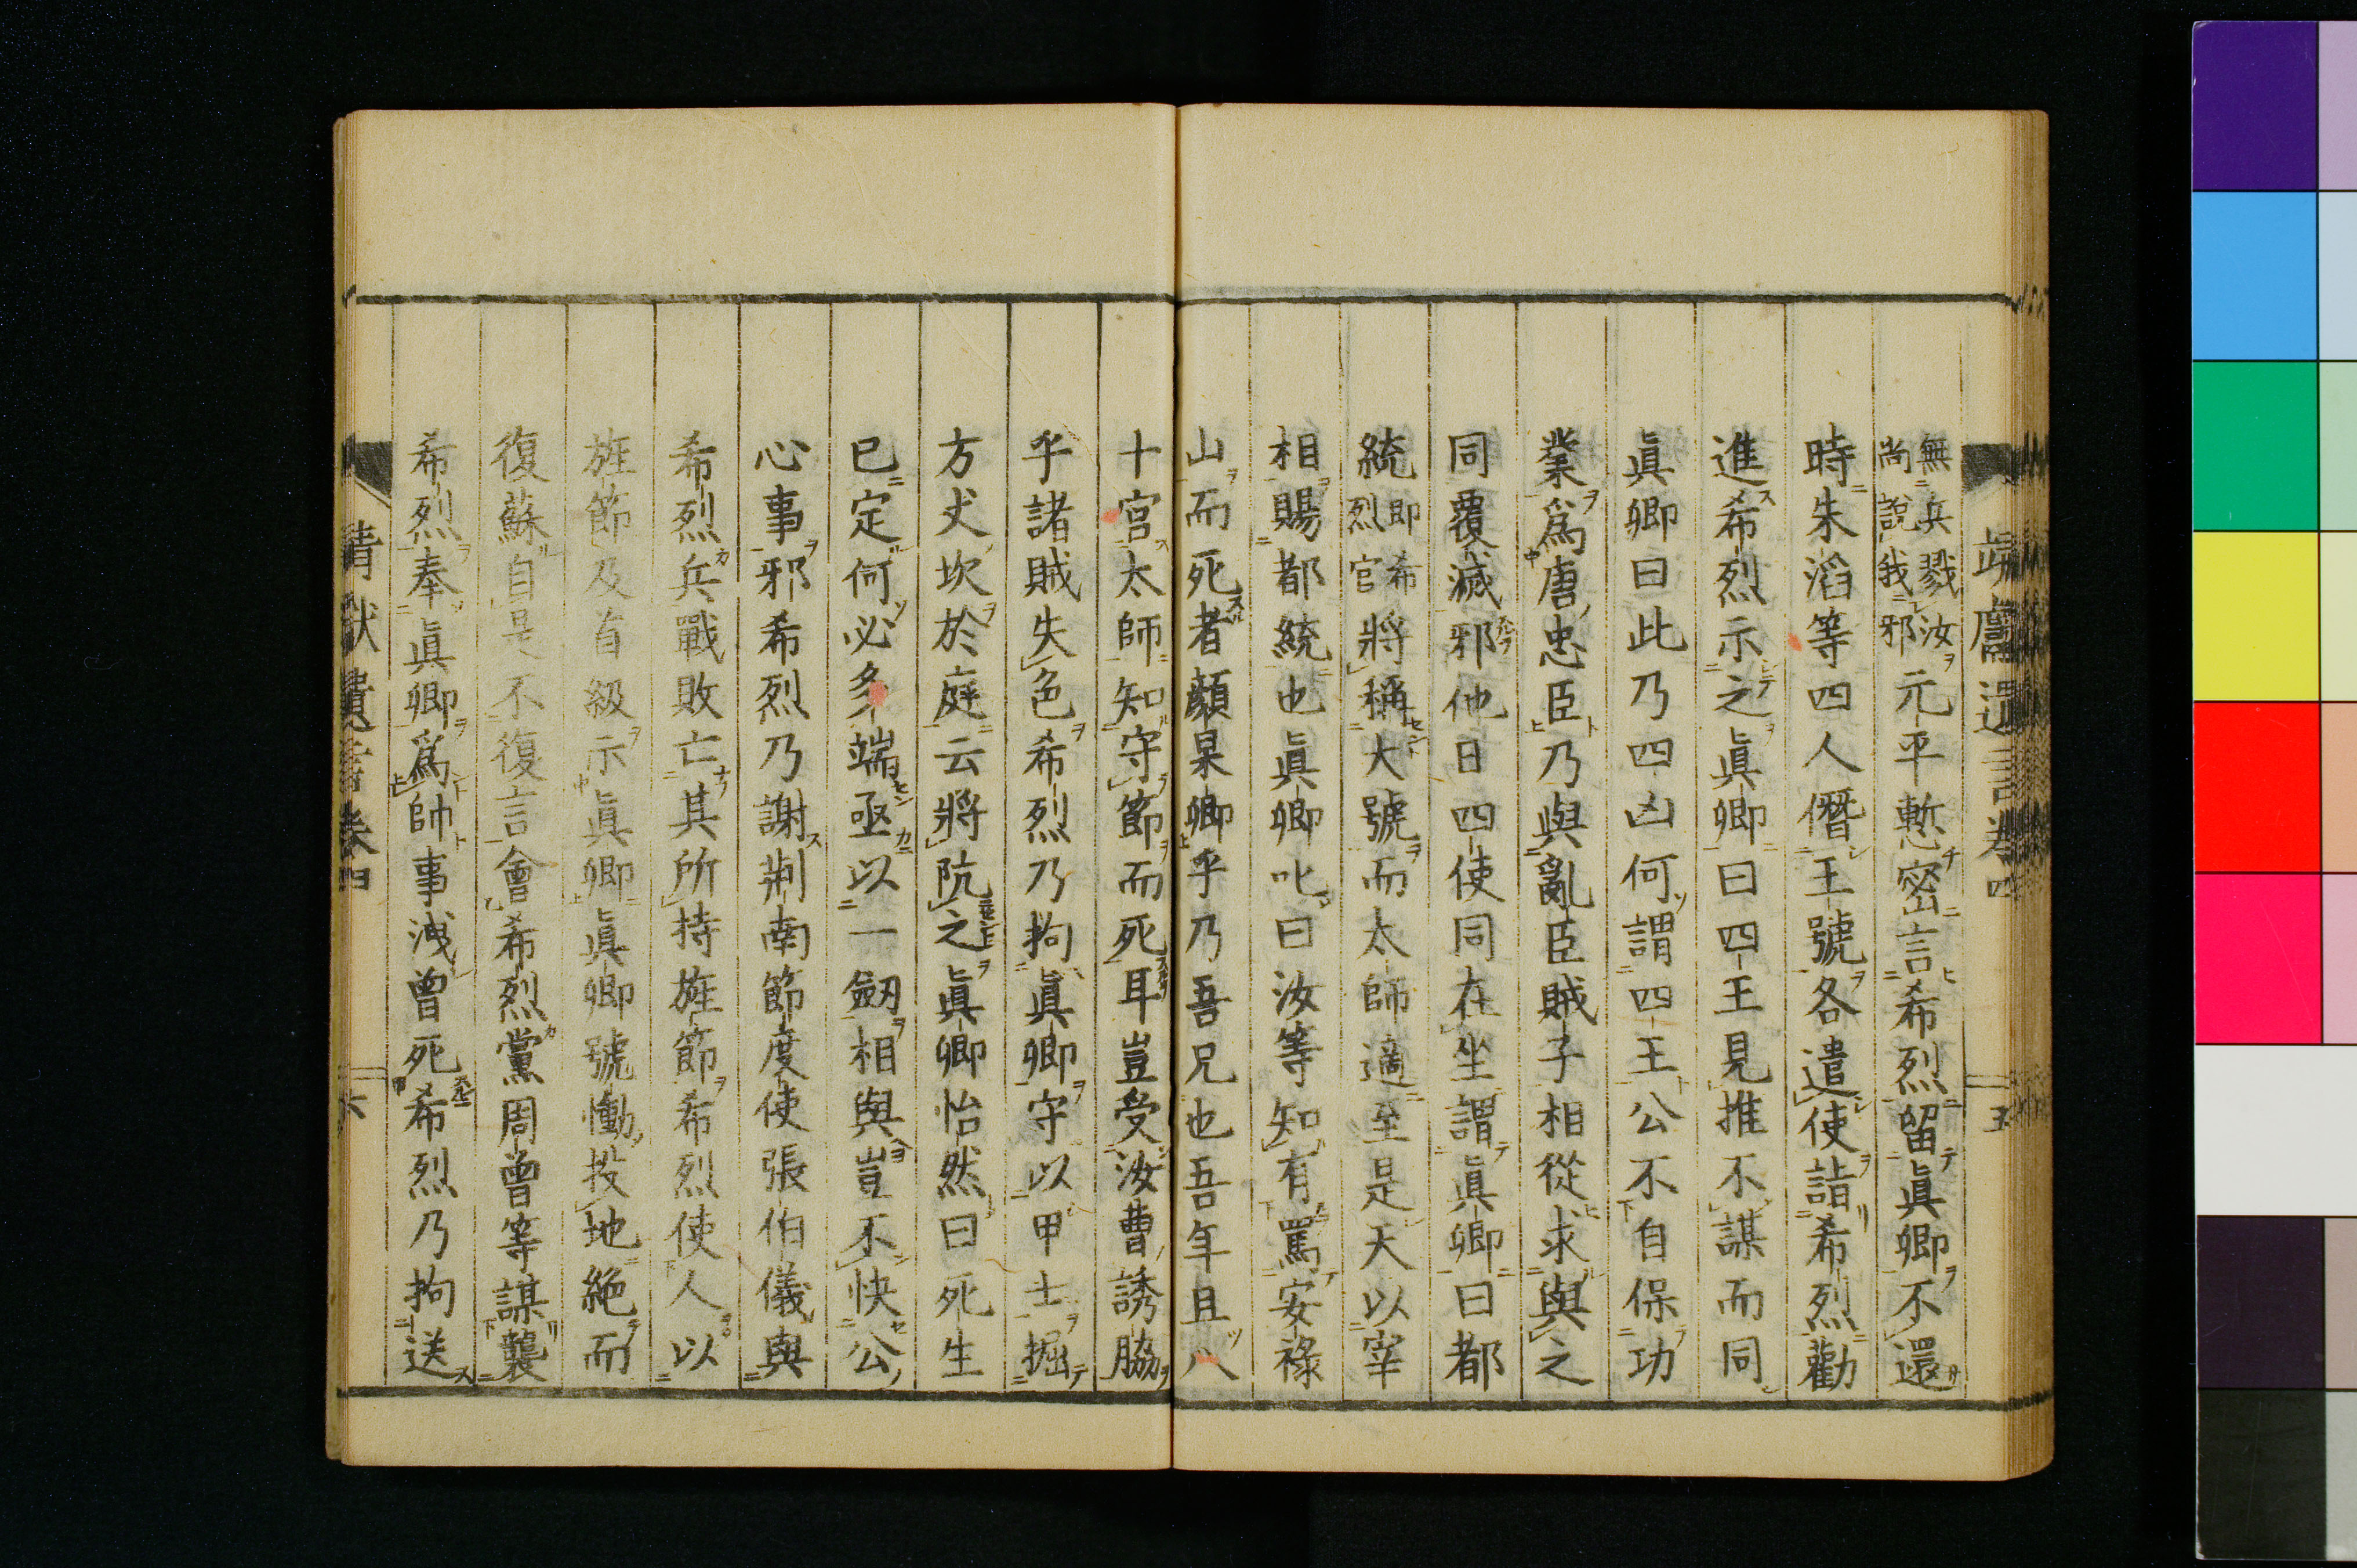 靖獻遺言卷四
五
無兵戮汝
尚說我邪元平慙密言希烈留眞卿不還
時朱滔等四人僭王號各遣使詣希烈勸
進希烈示之眞卿曰四王見推不謀而同
眞卿曰此乃四凶何謂四王公不自保功
業爲唐忠臣乃與亂臣賊子相從求與之
同覆滅邪他日四使同在坐謂眞卿曰都
統即希
烈官將稱大號而太師適至是天以宰
相賜都統也眞卿叱曰汝等知有罵安祿
山而死者顔杲卿乎乃吾兄也吾年且八
十官太師知守節而死耳豈受汝曹誘脇
乎諸賊失色希烈乃拘眞卿守以甲士掘
方丈坎於庭云將阬之眞卿怡然曰死生
已定何必多端亟以一劔相與豈不快公
心事邪希烈乃謝荆南節度使張伯儀與
希烈兵戰敗亡其所持旌節希烈使人以
旌節及首級示眞卿眞卿號慟投地絶而
復蘇自是不復言會希烈黨周曾等謀襲
希烈奉眞卿爲帥事洩曾死希烈乃拘送
靖獻遺言卷四
六